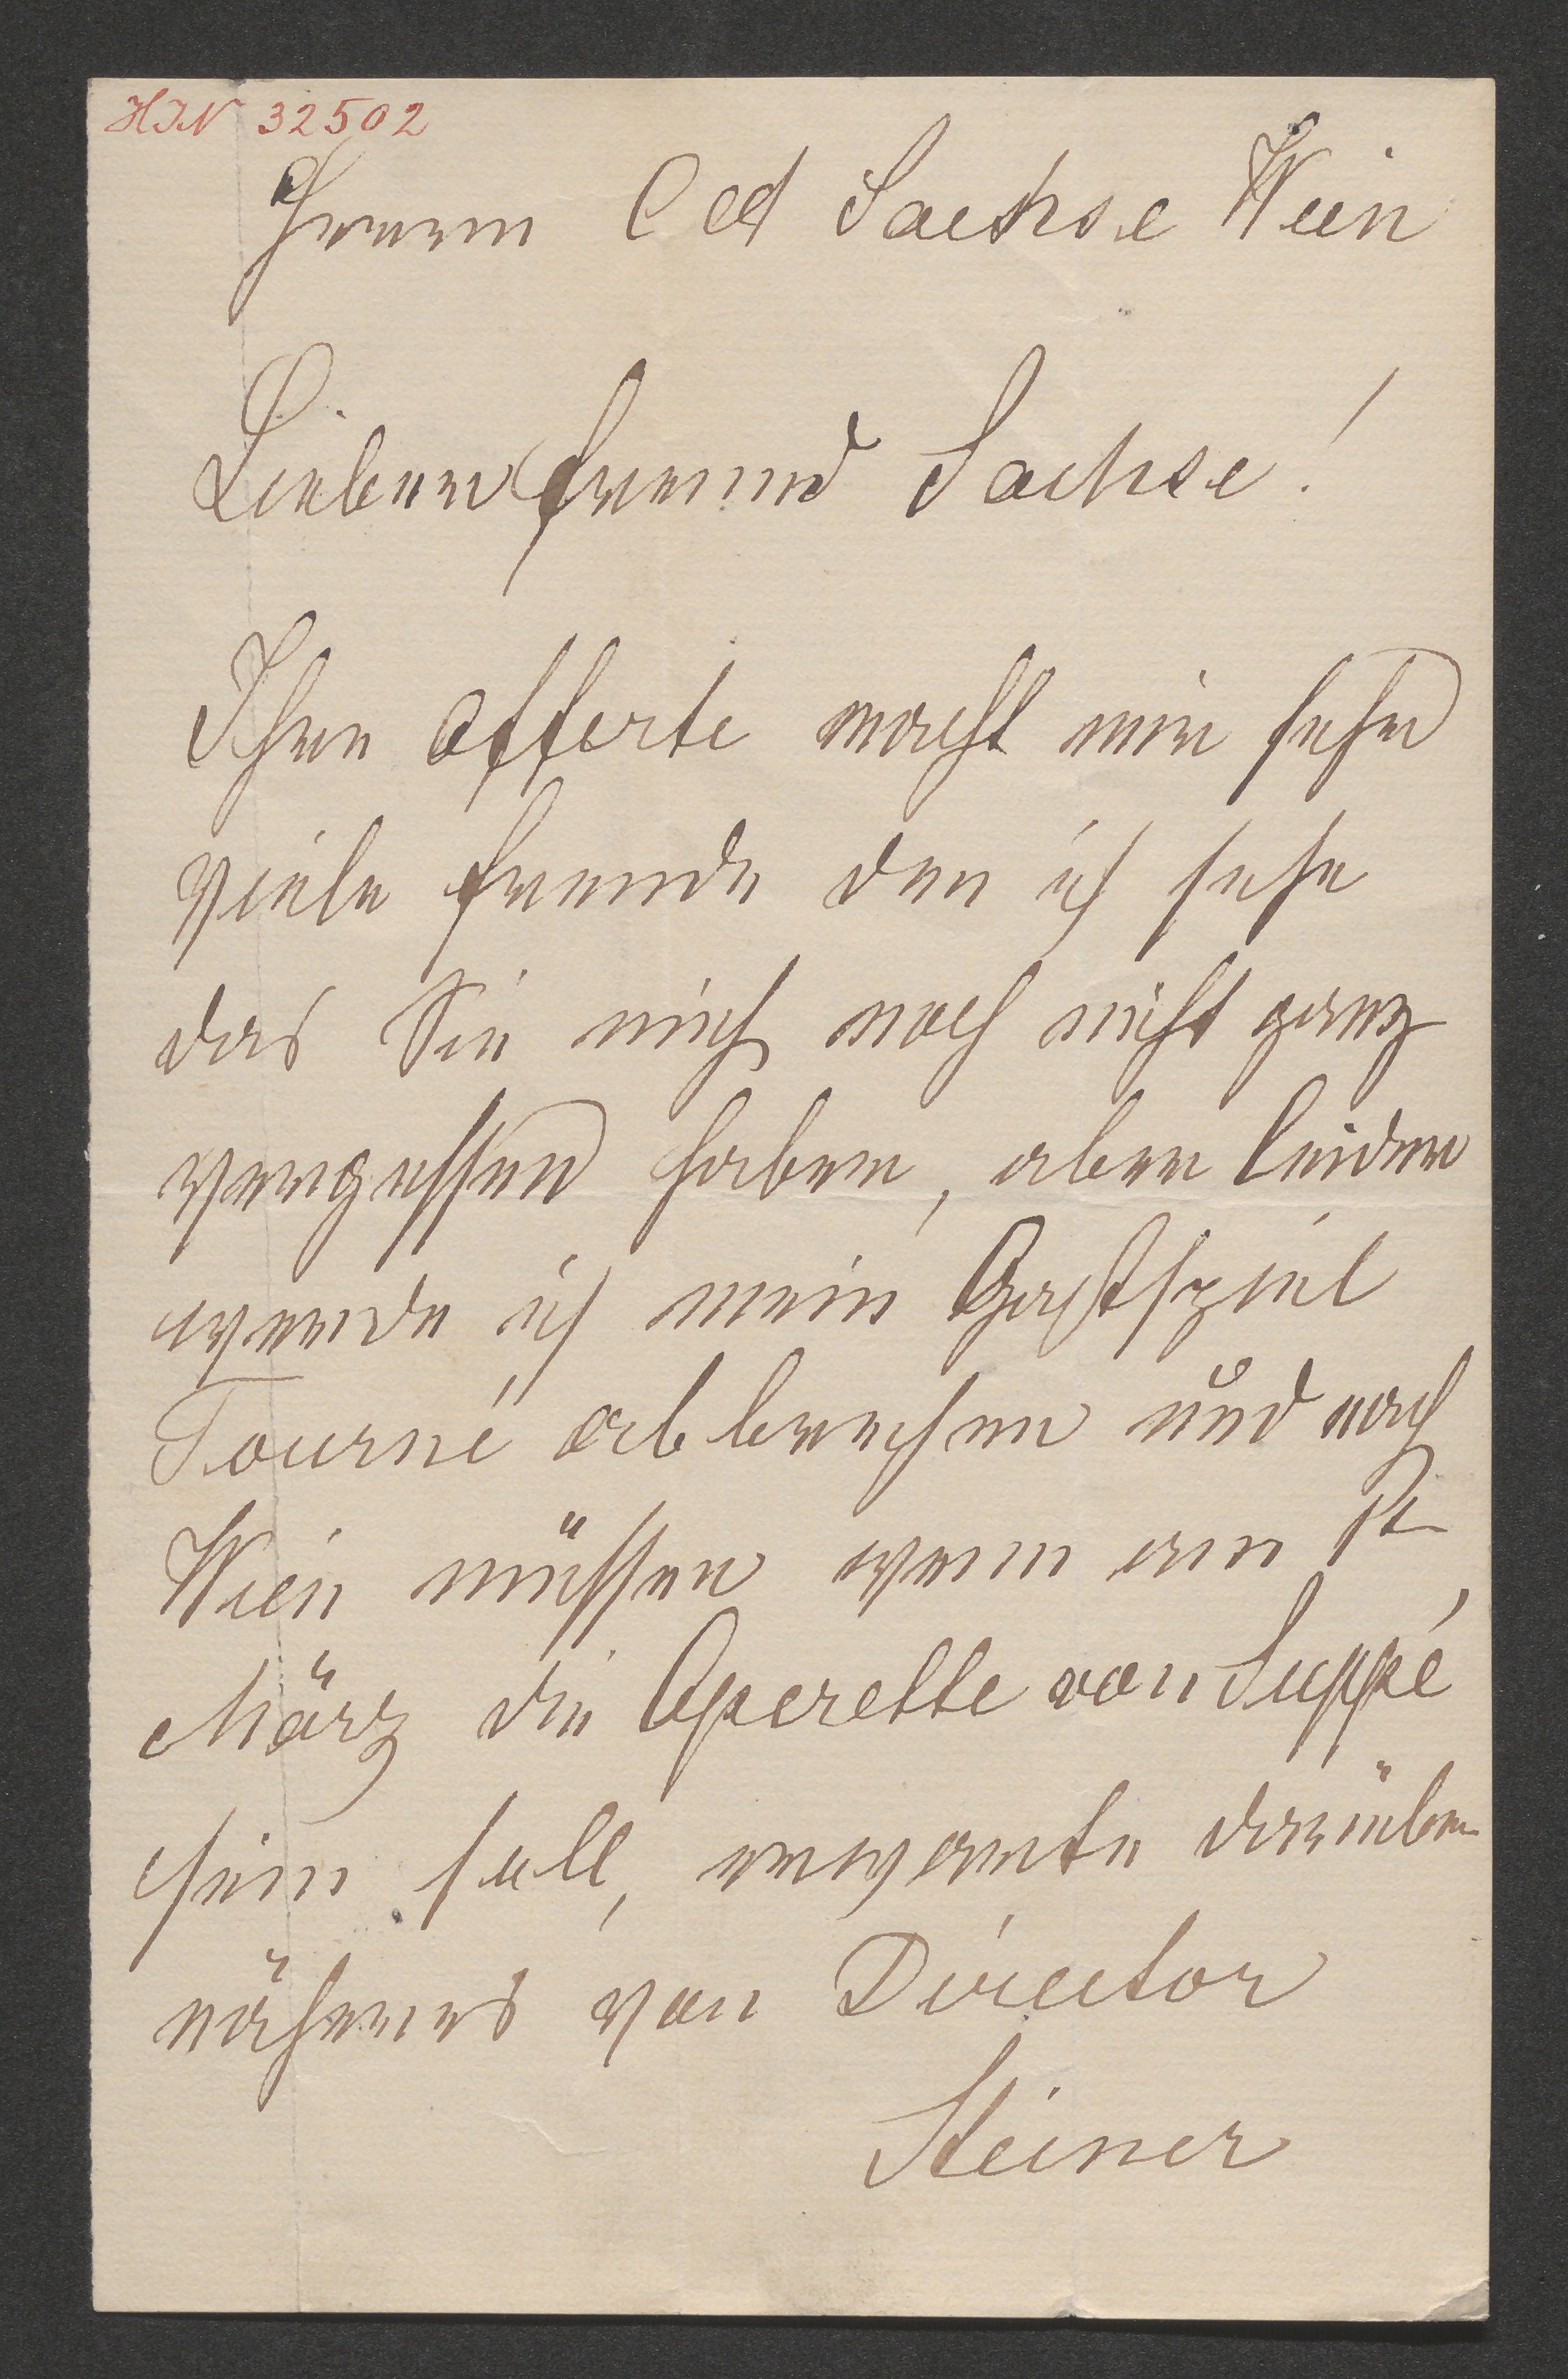 HIN 32502
Herrn C A Sachse Wien
Lieber Freund Sachse!
Ihre Offerte macht mir sehr
viele Freude den ich sehe
das Sie mich noch nicht ganz
vergessen haben, aber leider
werde ich mein Gastspiel
Tourné abbrechen und nach
Wien müssen wenn am 1t
März die Operette von Suppé
sein soll, erwarte darüber
näheres von Director
Steiner